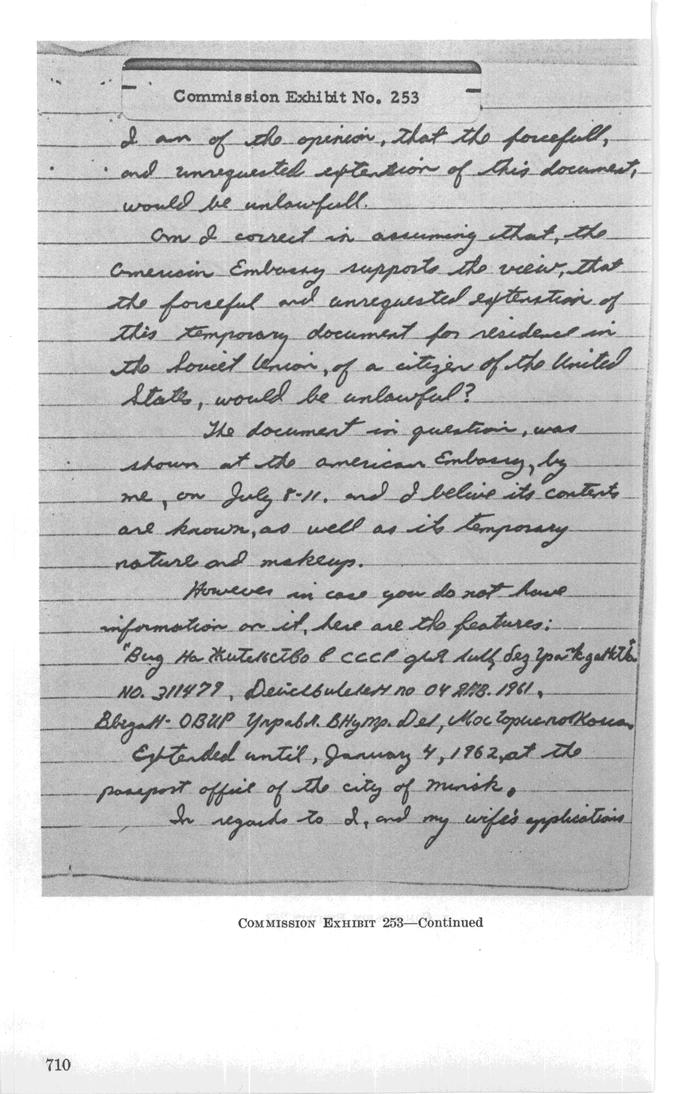 Commission Exhibit No. 253
I am of the opinion, that the forcefull,
and unrequested extention of this document,
would be unlawfull.
Am I correct in assuming that, the
American Embassy supports the view, that
the forceful and unrequested extenstion of
this temporary document for residence in
the Soviet Union, of a citizen of the United
States, would be unlawful?
The document in question, was
shown at the american Embassy, by
me, on July 8-11. and I belive its contents
are known, as well as its temporary
nature and makeup.
However in case you do not have
information on it, here are the features:
"Вид На Жительство в СССР для лиц без Гражданства
NO. 311479, Действителен по 04 ЯНВ. 1961,
Выдан- ОВИР Управл. Внутр. Дел,
Extended until, January 4, 1962, at the
passport office of the city of Minsk.
In regards to I, and my wife's applications
COMMISSION EXHIBIT 253—Continued
710